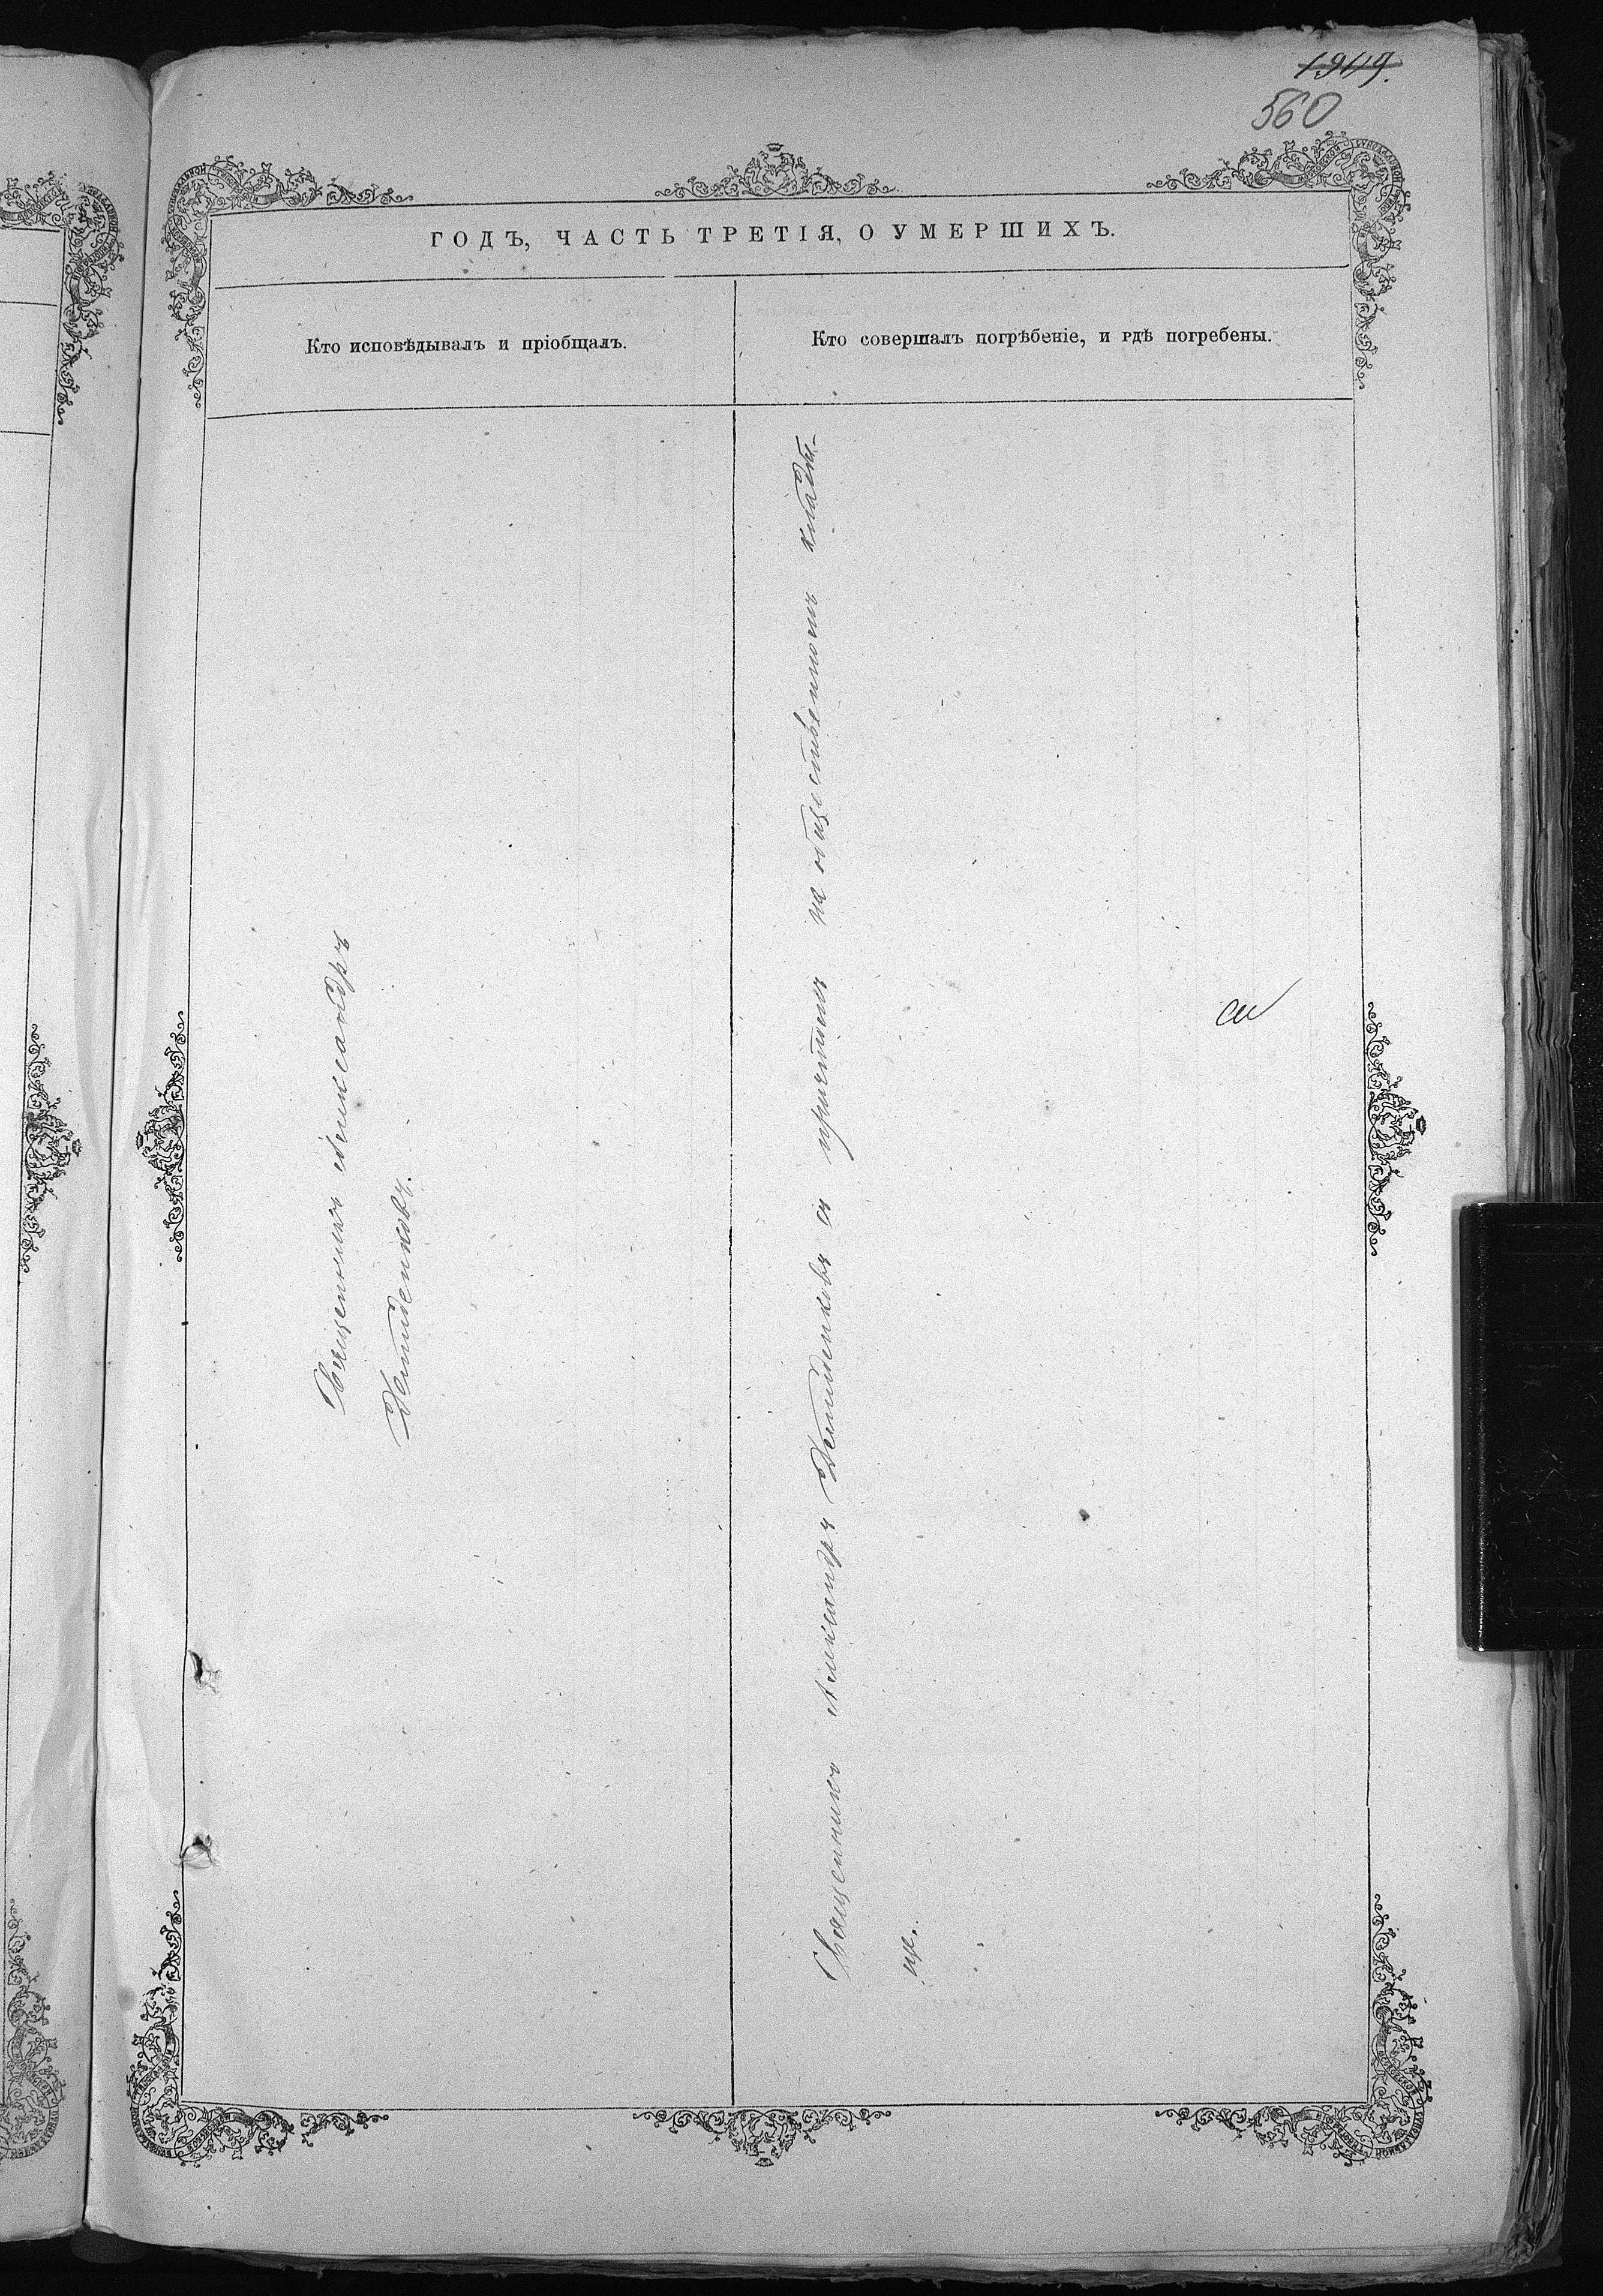 1949.
560
ГОДЪ, ЧАСТЬ ТРЕТІЯ, О УМЕРШИХЪ.
Кто исповѣдывалъ и пріобщалъ.
Кто совершалъ погрѣбеніе, и гдѣ погребены.
Священникъ Александръ
Священникъ Александръ съ причтомъ на общественномъ кладби-
щѣ.